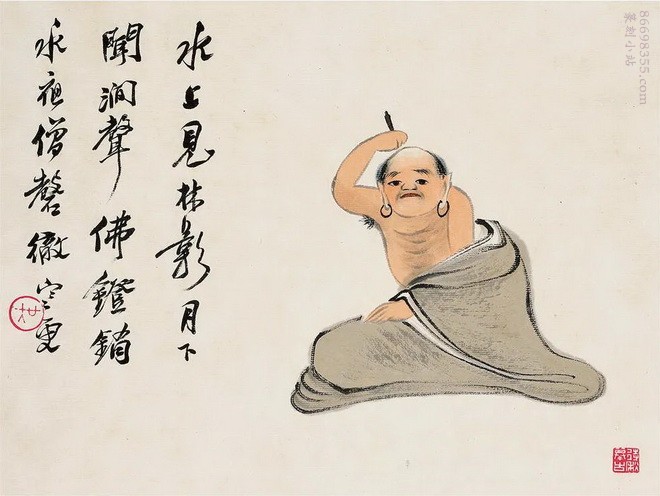 水上見林影月下
聞澗聲佛鐙銷
永夜僧磬徹寒更
86698355.com
篆刻小站